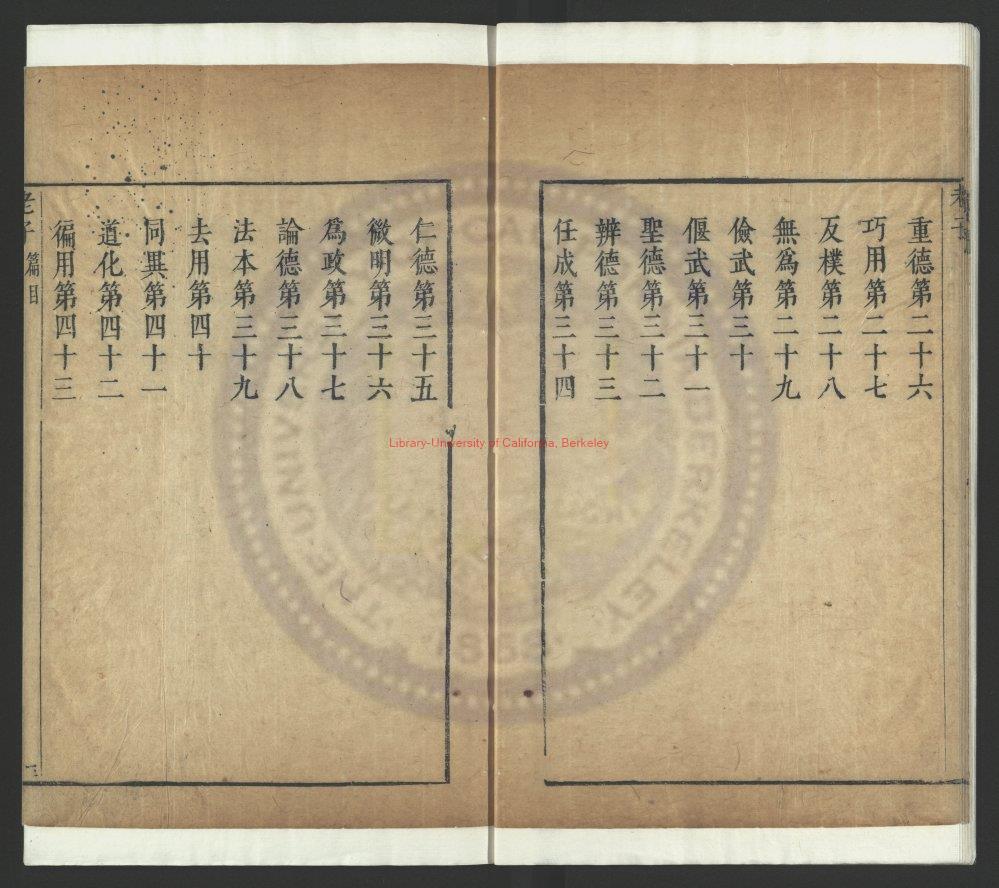 重德第二十六
巧用第二十七
反樸第二十八
無爲第二十九
儉武第三十
偃武第三十一
聖德第三十二
辨德第三十三
任成第三十四
仁德第三十五
微明第三十六
爲政第三十七
論德第三十八
法本第三十九
去用第四十
同異第四十一
道化第四十二
徧用第四十三
老子
篇目
Library-University of California, Berkeley
THE UNIVERSITY
BERKELEY
1868